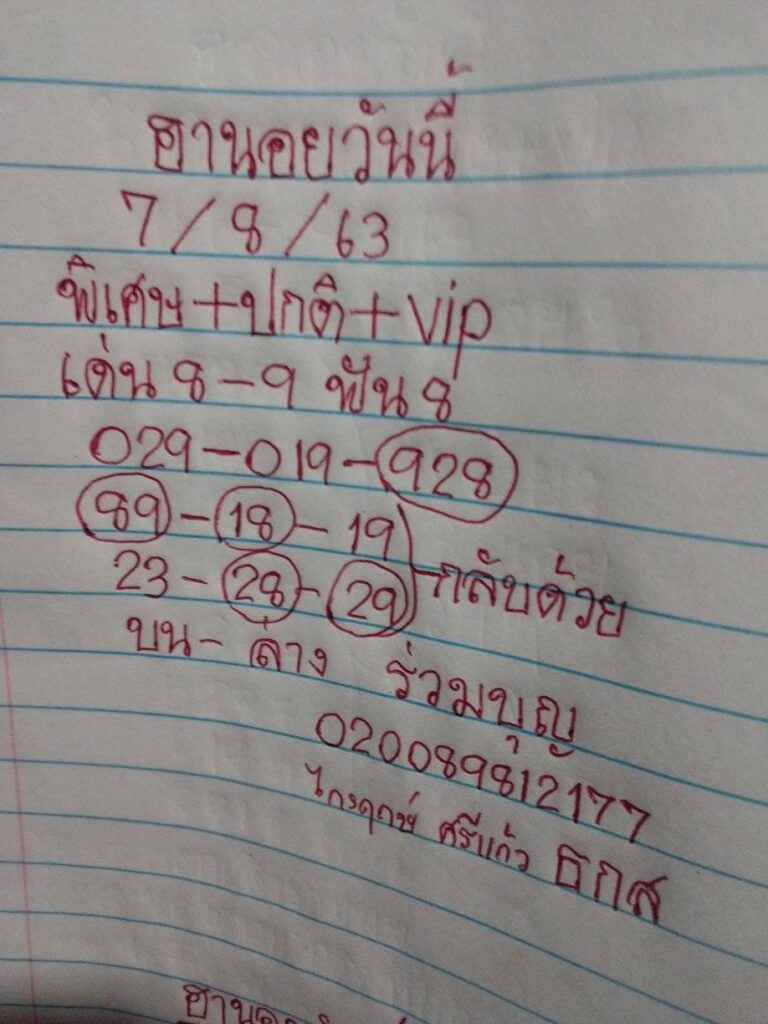 ฮานอยวันนี้
7/8/63
พิเศษ+ปกติ+vip
เด่น 8-9 ฟัน 8
029-019-928
89-18-19
23-28-29 กลับด้วย
บน-ล่าง ร่วมบุญ
020089812177
ไกรฤกษ์ ศรีแก้ว ธกส